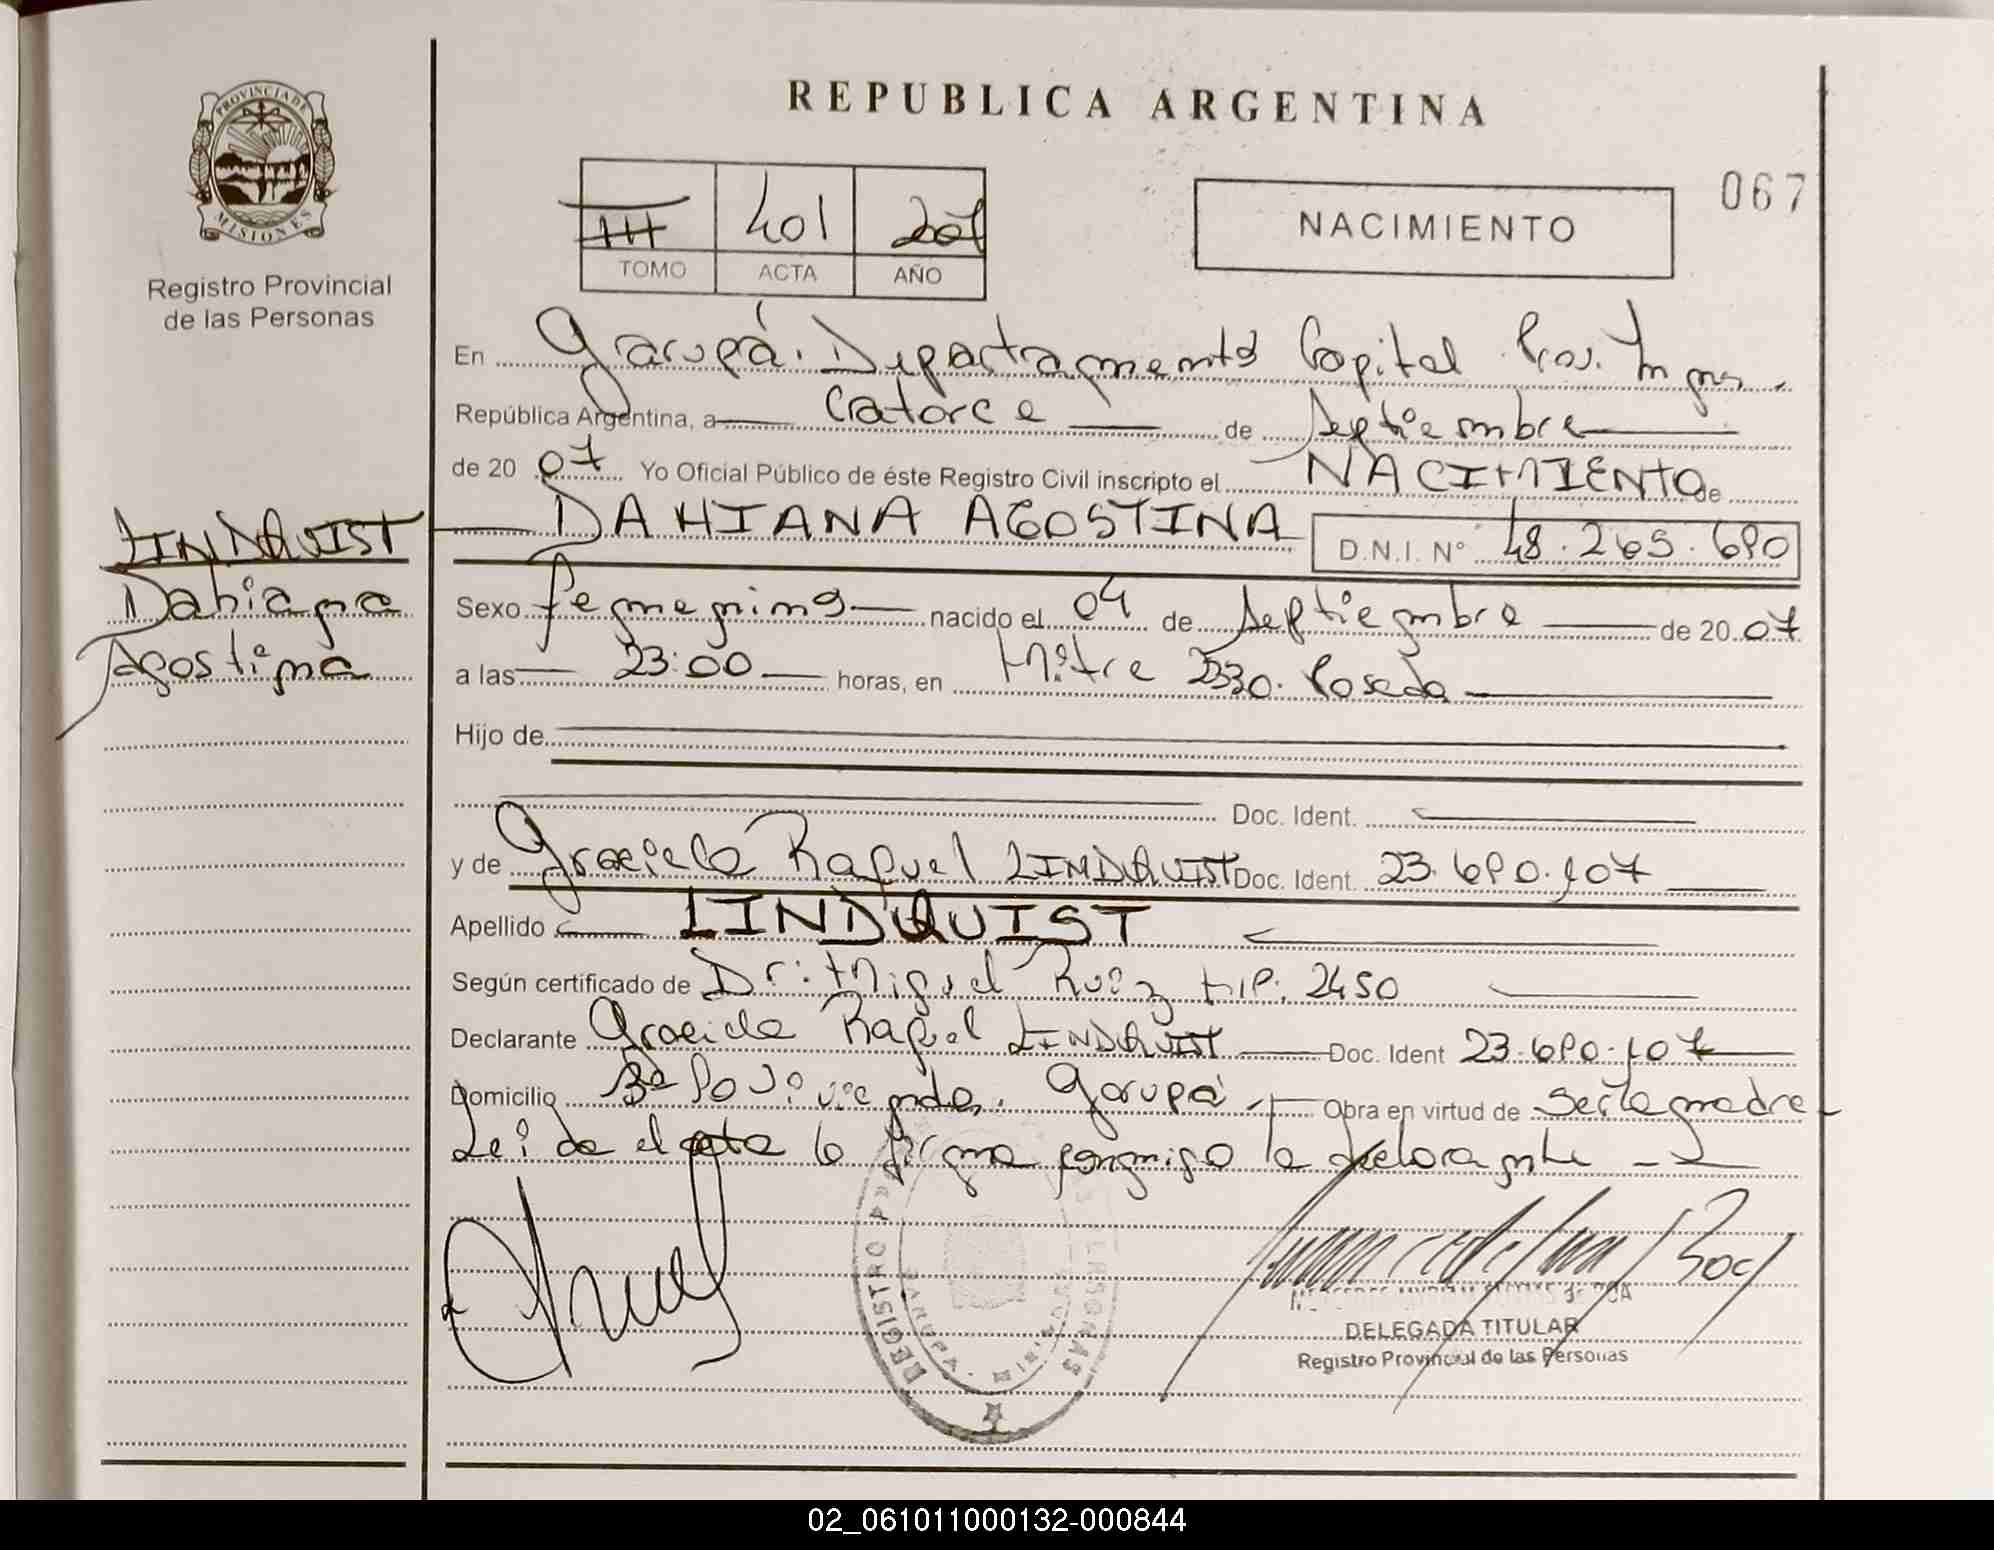 REPUBLICA ARGENTINA
PROVINCIA DE
MISIONES
Registro Provincial
de las Personas
III 401 2007
TOMO ACTA AÑO
NACIMIENTO
067
En Garupá. Departamento Capital Prov. Mnes.
República Argentina, a catorce de Septiembre
de 2007 Yo Oficial Público de éste Registro Civil inscripto el NACIMIENTO de
DAHIANA AGOSTINA D.N.I. Nº 48.265.690
LINDQUIST
Dahiana
Agostina
Sexo femenino nacido el 04 de Septiembre de 2007
a las 23:00 horas, en Mitre 2330. Posadas
Hijo de
Doc. Ident.
y de Graciela Raquel LINDQUIST Doc. Ident. 23.690.107
Apellido LINDQUIST
Según certificado de Dr. Miguel Ruiz M.P. 2450
Declarante Graciela Raquel LINDQUIST Doc. Ident 23.690.107
Domicilio Garupá Obra en virtud de ser la madre
Leida el acta la firma conmigo la declarante
REGISTRO
DELEGADA TITULAR
Registro Provincial de las Personas
02_061011000132-000844